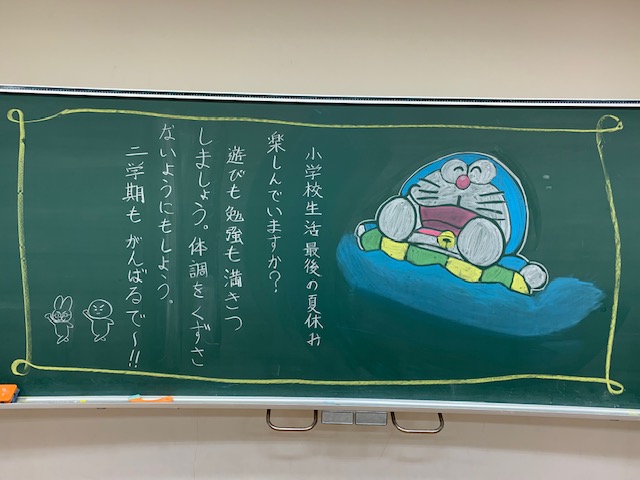 小学校生活最後の夏休み
楽しんでいますか?
遊びも勉強も満きつ
しましょう。体調をくずさ
ないようにもしよう。
二学期もがんばるで〜!!